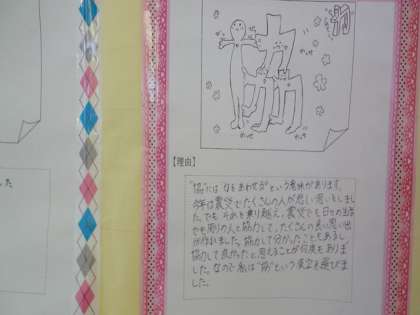 【理由】
"協"には 力をあわせる"という意味があります。
今年は震災でたくさんの人が悲しい思いをしまし
た。でも、それを乗り越え、震災でも日々の生活
でも周りの人と協力して、たくさんの良い思い出
が作れました。協力して分かったこともあるし、
協力して良かったと思えることが何度もありま
した。なので私は"協"という漢字を選びま
した。
た